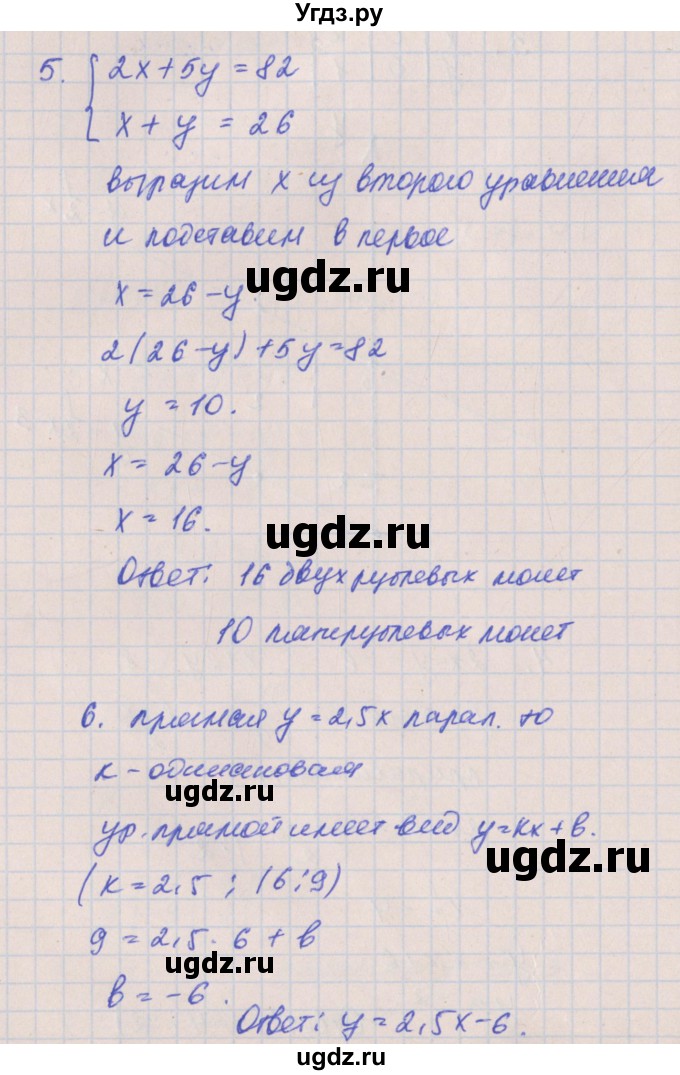 Угдз.ру
5. { 2x+5y=82
x+y=26
выразим x из второго уравнения
и подставим в первое
ugdz.ru
x=26-y
2(26-y)+5y=82
y=10.
x=26-y
x=16.
ugdz.ru
Ответ: 16 двухрублевых монет
10 пятирублевых монет
6. прямая y=2,5x парал.
к-одинаковая
ugdz.ru
ур. прямой имеет вид y=кx+в.
ugdz.ru
(к=2,5; (6;9)
9=2,5·6+в
ugdz.ru
в=-6.
Ответ: y=2,5x-6.
ugdz.ru